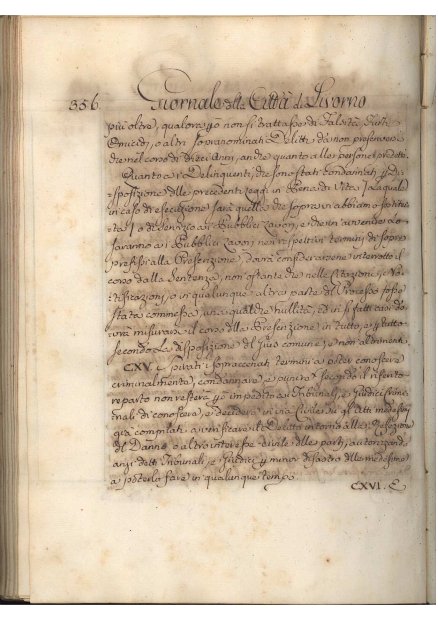 356. Giornale della Città di Livorno
più oltre, qualora non si trattasse di Falsità, Furti
Omicidi, o altri sopranominati Delitti da non prescriversi
che nel corso di Dieci Anni, anche quanto alle persone predette.
Quanto ai Delinquenti, che sono stati condannati p. Di-
sposizione delle precedenti Leggi in Pena di Vita, la quale
in caso di esecuzione sarà quella che sopra vi abbiamo sostitui-
ta, o di servizio ai Pubblici Lavori, e che in avvenire lo
saranno ai Pubblici Lavori nei rispettivi termini di sopra
prefissi alla Prescrizione, dovrà considerarsene interrotto il
corso dalla Sentenza, non ostante che nelle Citazioni, e No-
tificazioni, o in qualunque altra parte del Processo fosse
stata commessa una qualche nullità, ed in sì fatti casi do-
vrà misurarsi il corso della Prescrizione in tutto, e p. tutto
secondo La disposizione del Jus comune, e non altrimenti.
CXV. Spirati i sopraccennati termini a poter conoscere
criminalmente, condannare, e punire, secondo il riferito
reparto non resterà p. impedito ai Tribunali, e Giudici Crimi-
nali di conoscere, e decidere in via Civile su gli Atti medesimi
già compilati a verificare il Delitto intorno alla Refezione
del Danno, o altro interesse civile delle parti, autorizzando
anzi detti Tribunali, e Giudici p. minor disastro delle medesime
a poterlo fare in qualunque tempo.
CXVI. E